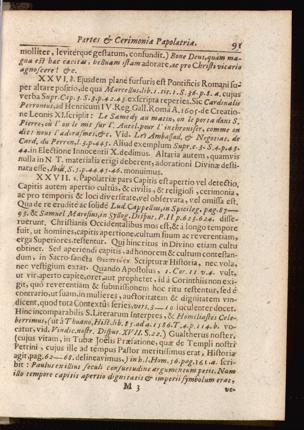 Partes & Cerimonia Papolatriæ. 91
molliter, leviterque gestatum, confundit.) Bone Deus, quàm ma-
gna est hac cacitas, belluam istam adorare, ac pro Christi vicario
agnoscere! &c.
XXVI. l. Ejusdem planè furfuris est Pontificis Romani su-
per altare positio, de qua Marcellus lib. 1. tit. 1. S. 36. p. f. a. cujus
verba Supr. Cap. 3. S. 3. p. 42. 43 excripta reperies. Sic Cardinalis
Perronius, ad Henricum IV Reg. Gall. Româ A. 1605. de Creatio-
ne Leonis XI. scripsit: Le Samedy au matin, on le porta dans S.
Pierre; où l'on le mis sur l' Autel, pour l' incthroniser, comme on
dit: nous l'adorasmes, &c. Vid. Les Ambassad. & Negotiat. de
Card. du Perron. l. 3. p. 445. Aliud exemplum Supr. c. 3. S. 4. p. 43.
44. in Electione Innocentii X. dedimus. Altaria autem, quamvis
nulla in N T. materialia erigi deberent, adorationi Divinæ desti-
nata esse, Ibid. S. 3. p. 44. 45. 46. monuimus.
XXVII. s. Papolatriæ pars Capitis est apertio vel detectio,
Capitis autem apertio cultus, & civilis, & religiosi, cerimonia,
ac pro temporis & loci diversitate, vel observata, vel omissa est.
Qua de re eruditè & solidè Lud. Cappellus, in Spicileg. pag. 89—
93. & Samuel Maresius, in Syllog. Disput. P. II p. 615. 624. disse-
ruerunt. Christianis Occidentalibus mos est, & à longo tempore
fuit, ut homines, capitis apertione cultum suum ac reverentiam,
erga Superiores, testentur. Qui hinc ritus in Divino etiam cultu
obtinet. Sed aperiendi capitis, ad honorem & cultum contestan-
dum, in Sacro-sancta Scripturæ Historia, nec vola,
nec vestigium extat. Quando Apostolus, 1. Cor. 11 v. 4. vult,
ut vir, aperto capite, oret, aut prophetet, id à Corinthiis non exi-
git, quò reverentiam & submissionem hoc ritu testentur, sed è
contrario, ut suam in mulieres, auctoritatem & dignitatem vin-
dicent, quod tota Contextûs series, vers. 3—10 luculenter docet.
Hinc incomparabilis S. Literarum Interpres, & Homiliastes Cele-
berrimus, (ut à Thuano, Hist. lib. 85. ad a. 1586 T. 4. p. 114. b. vo-
catur, vid. Vindic. nostr. Disput. XVII. S. 22.) Gualtherus noster,
(cujus vitam, in Tubæ Joelis Præfatione, quæ de Templi nostri
Petrini, cujus ille ad tempus Pastor meritissimus erat, Historia
agit, pag. 62—68. delineavimus,) in h. l. Hom. 56. pag. 161. a. scri-
bit: Paulus ex illius seculi consuetudine argumentum petit. Nam
illo tempore capitis apertio dignitatis & imperii symbolum erat,
M 3 ve-